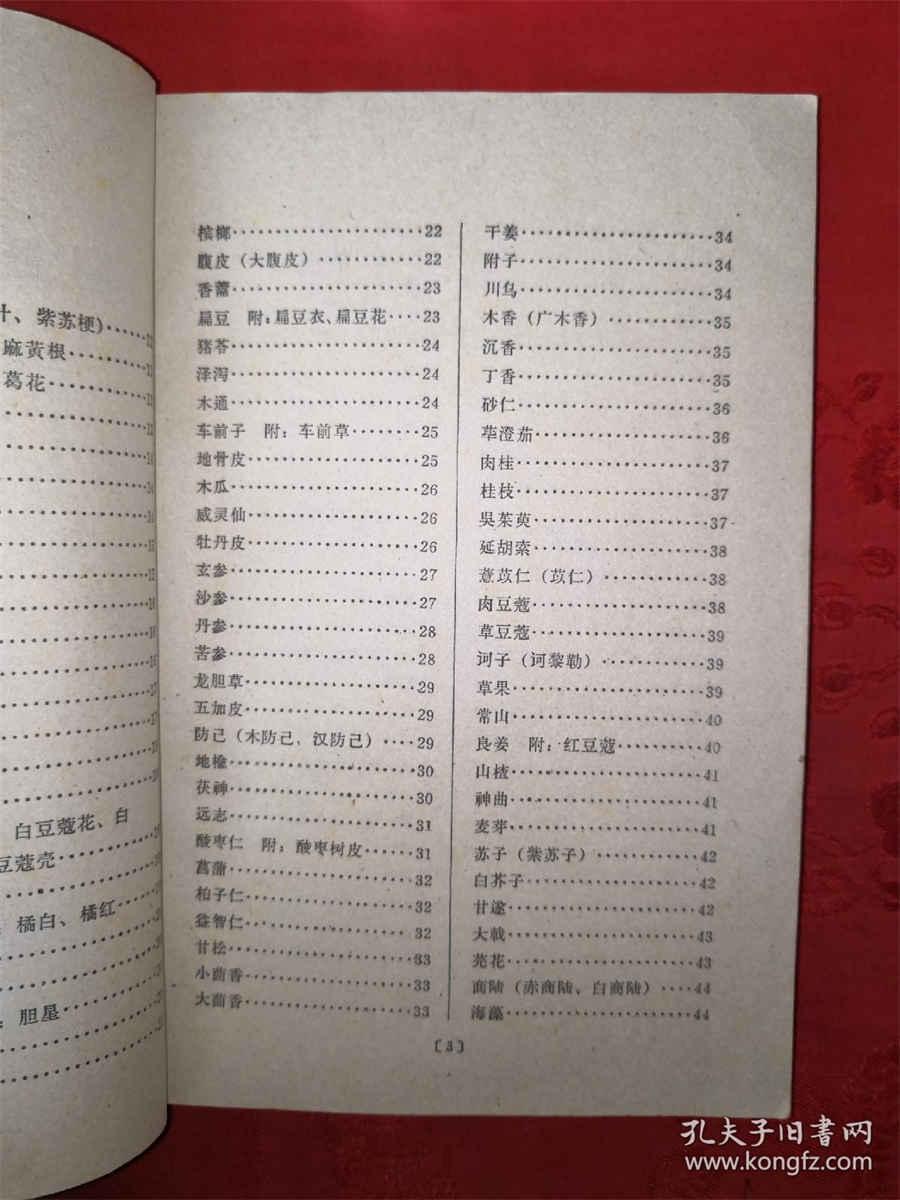 叶、紫苏梗)
麻黄根
葛花
白豆蔻花、白
豆蔻壳
橘白、橘红
胆星
槟榔 22
腹皮（大腹皮） 22
香薷 23
扁豆 附：扁豆衣、扁豆花 23
猪苓 24
泽泻 24
木通 24
车前子 附：车前草 25
地骨皮 25
木瓜 26
威灵仙 26
牡丹皮 26
玄参 27
沙参 27
丹参 28
苦参 28
龙胆草 29
五加皮 29
防己（木防己、汉防己） 29
地榆 30
茯神 30
远志 31
酸枣仁 附：酸枣树皮 31
菖蒲 32
柏子仁 32
益智仁 32
甘松 33
小茴香 33
大茴香 33
干姜 34
附子 34
川乌 34
木香（广木香） 35
沉香 35
丁香 35
砂仁 36
荜澄茄 36
肉桂 37
桂枝 37
吳茱萸 37
延胡索 38
薏苡仁（苡仁） 38
肉豆蔻 38
草豆蔻 39
诃子（诃黎勒） 39
草果 39
常山 40
良姜 附：红豆蔻 40
山楂 41
神曲 41
麦芽 41
苏子（紫苏子） 42
白芥子 42
甘遂 42
大戟 43
芫花 43
商陆（赤商陆、白商陆） 44
海藻 44
〔3〕
孔夫子旧書网
www.kongfz.com